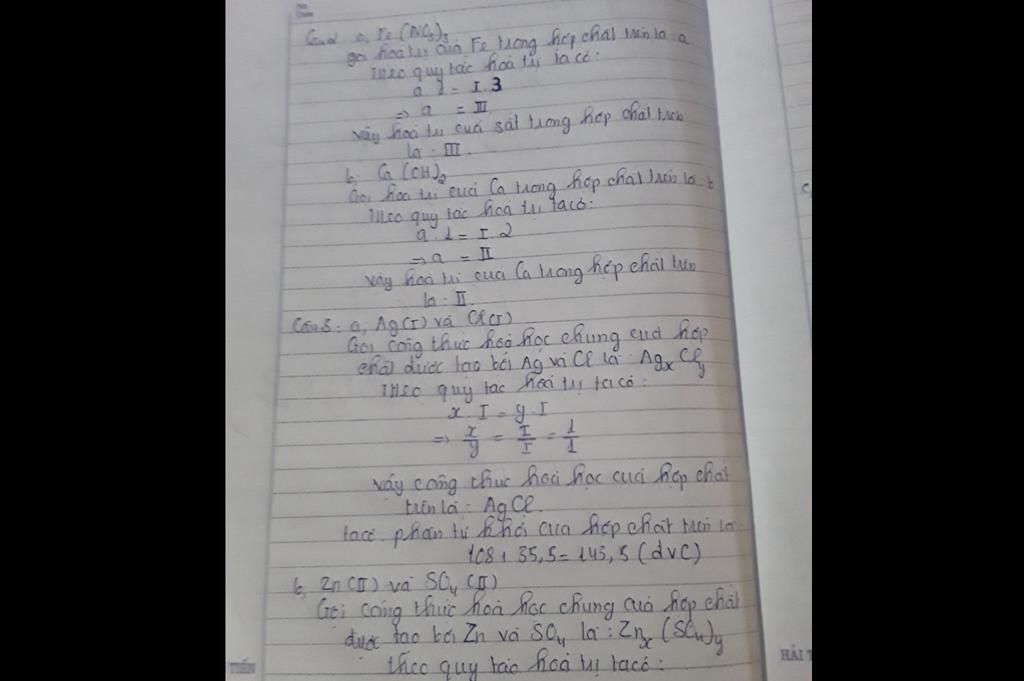 Câu 2 a, Fe(NO3)3
gọi hoá trị của Fe trong hợp chất trên là a
Theo quy tắc hoá trị ta có:
a . 1 = I . 3
=> a = III
Vậy hoá trị của sắt trong hợp chất trên
là: III
b, Ca(OH)2
Gọi hoá trị của Ca trong hợp chất trên là
Theo quy tắc hoá trị ta có:
a . 1 = I . 2
=> a = II
Vậy hoá trị của Ca trong hợp chất trên
là: II
Câu 3: a, Ag(I) và Cl(I)
Gọi công thức hoá học chung của hợp
chất được tạo bởi Ag và Cl là: AgxCly
Theo quy tắc hoá trị ta có:
x . I = y . I
=> x/y = I/I = 1/1
Vậy công thức hoá học của hợp chất
trên là: AgCl.
ta có phân tử khối của hợp chất trên là
108 + 35,5 = 143,5 (đvC)
b, Zn(II) và SO4 (II)
Gọi công thức hoá học chung của hợp chất
được tạo bởi Zn và SO4 là: Znx(SO4)y
theo quy tắc hoá trị ta có:
TIẾN
HẢI T